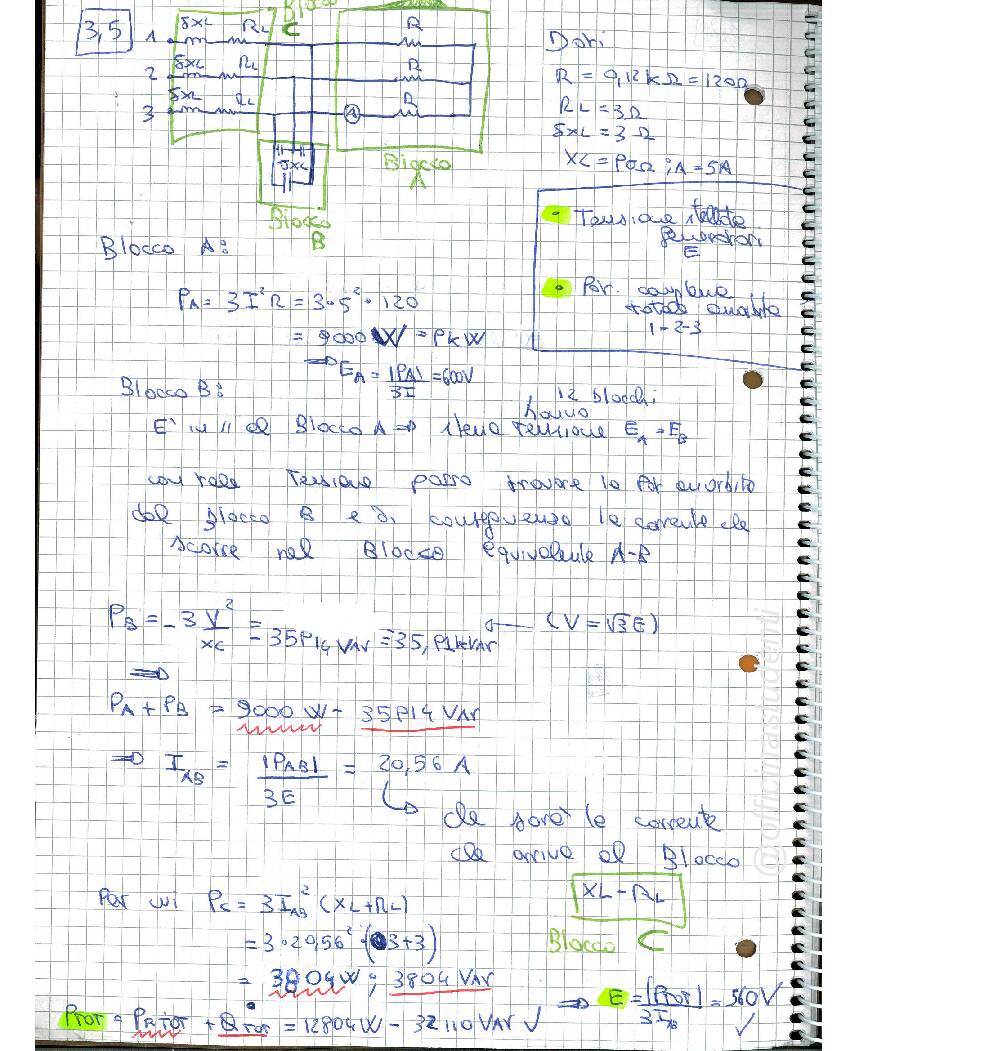 3,5
Blocco
C
δXL RL R
1
δXL RL R
2
δXL RL R
3 A
δXL
Blocco
A
Blocco
B
Dati
R = 0,12kΩ = 120Ω
RL = 3Ω
δXL = 3Ω
XC = 90Ω ; A = 5A
Tensione stellata
generatori
E
Pot. complessa
totale assorbita
1-2-3
Blocco A:
PA = 3I²R = 3·5²·120
= 9000 W = 9kW
⇒ EA = |PA| / 3I = 600V
Blocco B:
I 2 blocchi
hanno
E' in // al Blocco A ⇒ stessa Tensione EA = EB
con tale Tensione posso trovare la Pot assorbita
dal Blocco B e di conseguenza la corrente che
scorre nel Blocco equivalente A-B
PB = -3 V² / XC = - 35914 VAR = 35,91kVAR ← (V = √3E)
⇒
PA + PB = 9000 W - 35914 VAR
⇒ IAB = |PAB| / 3E = 20,56 A
che sarà la corrente
che arriva al Blocco
XL - RL
Blocco C
Per cui PC = 3IAB² (XL+RL)
= 3·20,56² · (3+3)
= 3804W ; 3804 VAR
⇒ E = |PTOT| / 3IAB = 560V ✓
PTOT = PRTOT + QTOT = 12804W - 32110 VAR ✓
@officinastudenti